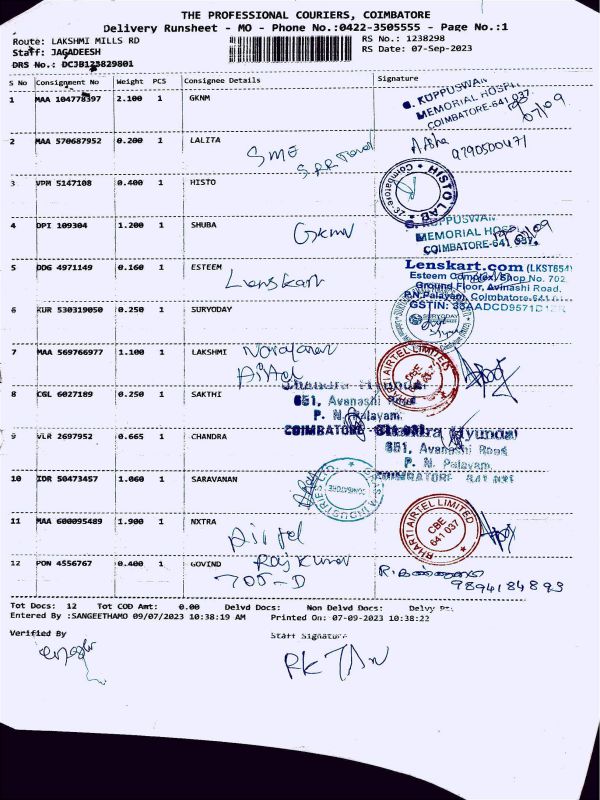 THE PROFESSIONAL COURIERS, COIMBATORE
Delivery Runsheet - MO - Phone No.:0422-3505555 - Page No.:1
Route: LAKSHMI MILLS RD RS No.: 1238298
Staff: JAGADEESH RS Date: 07-Sep-2023
DRS No.: DCJB123829801
S No Consignment No Weight PCS Consignee Details Signature
1 MAA 104778397 2.100 1 GKNM
G. KUPPUSWAMY
MEMORIAL HOSPI
COIMBATORE-641 037.
07/09
2 MAA 570687952 0.200 1 LALITA
SME
Asha 9790500471
3 VPM 5147108 0.400 1 HISTO
HISTO LAB
4 DPI 109304 1.200 1 SHUBA
Gkmv
KUPPUSWAM
MEMORIAL HOSPI
COIMBATORE-641 037.
5 DDG 4971149 0.160 1 ESTEEM
Lenskart
Lenskart.com (LKST654)
Esteem Complex, Shop No. 702
Ground Floor, Avinashi Road,
P.N.Palayam, Coimbatore-641
GSTIN: 33AADCD9571D1ZR
6 KUR 530319050 0.250 1 SURYODAY
SURYODAY
7 MAA 569766977 1.100 1 LAKSHMI
Narayanan
Airtel
BHARTI AIRTEL LIMITED
CBE
641 037
8 CGL 6027189 0.250 1 SAKTHI
Chandra Hyundai
651, Avanashi Road
P. N. Palayam,
COIMBATORE - 641 037.
9 VLR 2697952 0.665 1 CHANDRA
Chandra Hyundai
651, Avanashi Road
P. N. Palayam,
COIMBATORE 641 037
10 IDR 50473457 1.060 1 SARAVANAN
INDUSTRIES
COIMBATORE
11 MAA 600095489 1.900 1 NXTRA
Airtel
BHARTI AIRTEL LIMITED
CBE
641 037
12 PON 4556767 0.400 1 GOVIND
Rajkumar
705-D
9894184893
Tot Docs: 12 Tot COD Amt: 0.00 Delvd Docs: Non Delvd Docs: Delvy Pt:
Entered By :SANGEETHAMO 09/07/2023 10:38:19 AM Printed On: 07-09-2023 10:38:22
Verified By Staff Signature